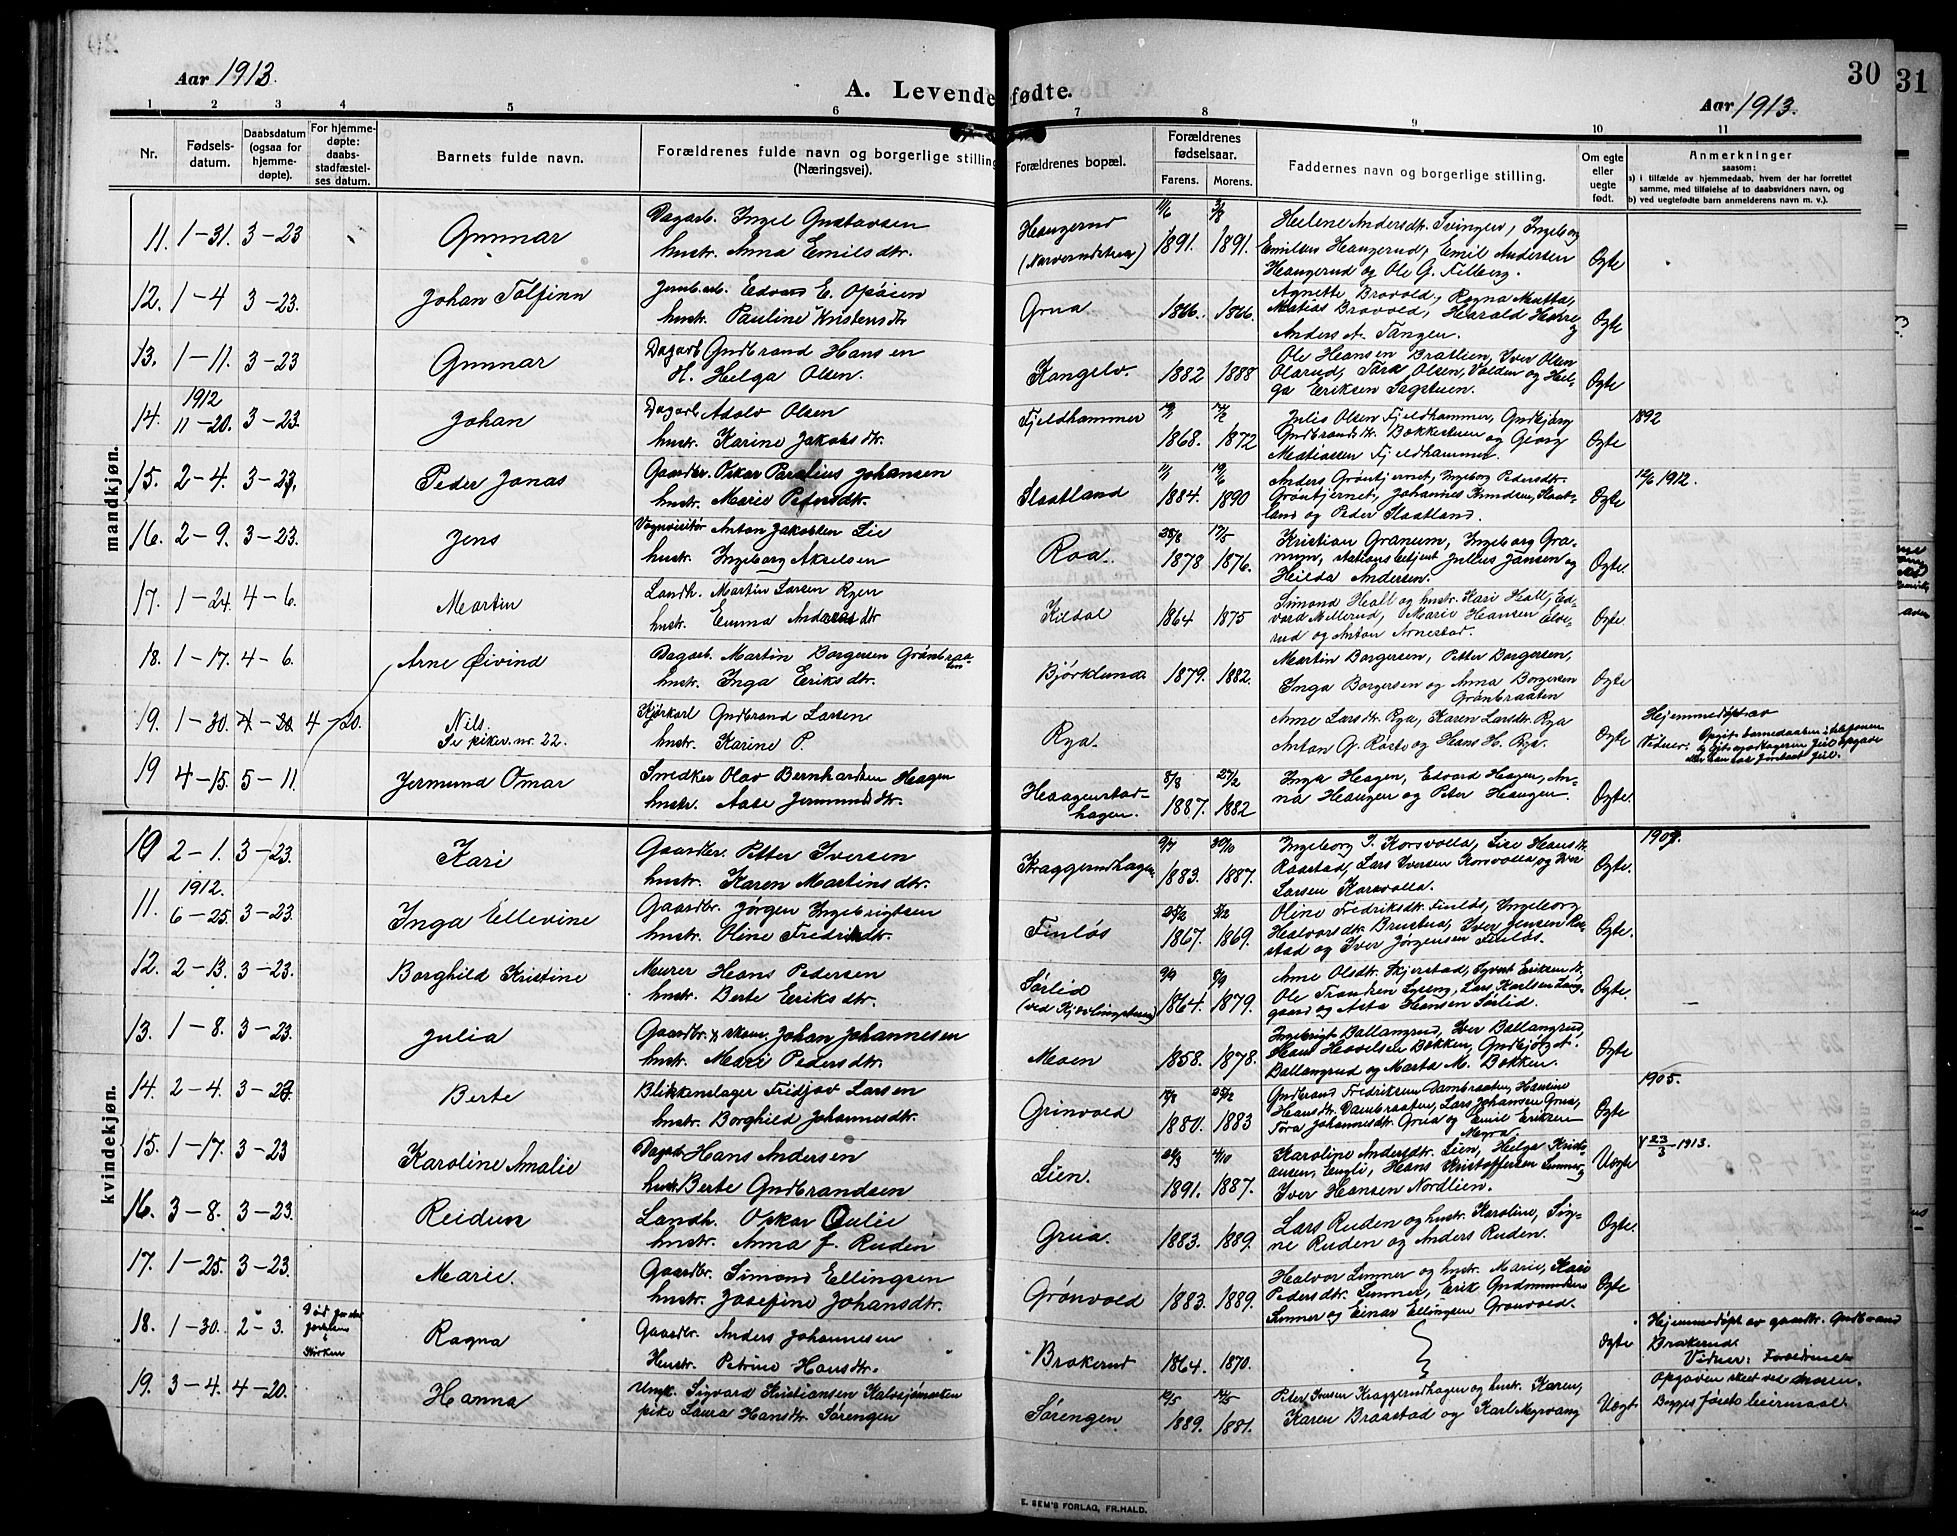 Aar 1913.
A. Levendefødte.
30
31
Aar 1913.
1 2 3 4 5 6 7 8 9 10 11
Nr.
Fødsels-
datum.
Daabsdatum
(ogsaa for
hjemme-
døpte).
For hjemme-
døpte:
daabs-
stadfæstel-
ses datum.
Barnets fulde navn.
Forældrenes fulde navn og borgerlige stilling
(Næringsvei).
Forældrenes bopæl.
Forældrenes
fødselsaar.
Farens. Morens.
Faddernes navn og borgerlige stilling.
Om egte
eller
uegte
født.
Anmerkninger
saasom:
a) i tilfælde av hjemmedaab, hvem der har forrettet
samme, med tilføielse af to daabsvidners navn, og
b) ved uegtefødte barn anmelderens navn m. v.).
mandkjøn.
11. 1-31. 3-23 Gunnar
Dagarb. Ingel Gustavsen
hustr. Anna Emilsdtr.
Haugerud
11/6 1891. 3/8 1891.
Helene Andersdtr. Svingen, Ingeborg
Emilsen Haugerud, Emil Andersen
Haugerud og Ole G. Filberg.
Ogte
12. 1-4 3-23. Johan Tolfinn
Jernb.arb. Edvard E. Opöien
hustr. Pauline Kristensdtr
Grua 1866. 1866.
Agnette Brovold, Ragna Mutta,
Matias Brovold, Harald Horre og
Anders A. Tangen.
Ogte
13. 1-11. 3-23 Gunnar
Dagarb Gudbrand Hansen
H. Helga Olsen.
Kongelv. 1882 1888
Ole Hansen Bratlien, Iver Olsen
Olarud, Tora Olsen, Volden og Hel-
ga Eriksen Sagstuen.
Ogte
14. 1912 11-20. 3-23. Johan
Dagarb Adolv Olsen
hustr. Karine Jakobsdtr
Fjeldhammer 1868. 1872
Julie Olsen Fjeldhammer, Gudbjørg
Gudbrandsdtr. Bokkestuen og Georg
Matiassen Fjeldhammer.
Ogte 1892
15. 2-4. 3-23, Peder Jonas
Gaardbr. Oskar Paralius Johansen
hustr. Marie Petersdtr.
Slaatland 11/1 1884. 19/6 1890
Anders Grøntjernet, Ingeborg Pedersdtr.
Grøntjernet, Johannes Knudsen, Slaat-
land og Peder Slaatland.
Ogte 12/6 1912.
16. 2-9. 3-23. Jens
Vognvisitør Anton Jakobsen Lie
hustr. Ingeborg Akselsen
Roa. 28/8 1878 17/5 1876.
Kristian Granum, Ingeborg Gra-
num, stationsbetjent Julius Jansen og
Hilda Andersen.
Ogte.
17. 1-24. 4-6. Martin
Landh. Martin Larsen Ryen
hustr. Emma Andersdtr
Kildal 1864 1875
Simond Hall og hustr. Kari Hall, Ed-
vard Millerud, Marie Hansen Elve-
rud og Anton Arnestad.
Ogte
18. 1-17. 4-6. Arne Øivind
Dagarb. Martin Borgersen Grønbraaten
hustr. Inga Eriksdtr.
Bjørklund. 1879. 1882.
Martin Borgersen, Petter Borgersen,
Inga Borgersen og Anna Borgersen
Grønbraaten
Ogte
19. 1-30. 4-20 4-20. Nils.
Se piker. nr. 22.
Kjørkarl Gudbrand Larsen
hustr. Karine P.
Rya.
Anne Larsdtr. Rya, Karen Larsdtr. Rya
Anton G. Raste og Hans H. Rya.
Ogte
Hjemmedøpt av
Vidner:
19 4-15. 5-11. Jermund Omar
Smedker Olav Bernhardsen Hagen
hustr. Aase Jermundsdtr.
Haagenstad-
hagen. 8/8 1887. 27/2 1882
Inga Hagen, Edvard Hagen, An-
na Haugen og Peter Haugen.
Ogte.
kvindekjøn.
10 2-1. 3-23. Kari
Gaardbr. Petter Iversen
hustr. Karen Martinsdtr.
Kraggerudhagen 1883. 30/10 1887.
Ingeborg I. Korsvolla, Lise Hansdtr.
Raastad, Lars Iversen Korsvolla og Iver
Larsen Korsvolla.
Ogte. 1907.
11. 1912. 6-25. 3-23. Inga Ellevine
Gaardbr. Jørgen Ingebrigtsen
hustr. Oline Fredriksdtr.
Finløs 25/2 1867. 1869.
Oline Fredriksdtr. Finløs, Ingeborg
Halvorsdtr. Brustua, Iver Jensen Raa-
stad og Iver Jørgensen Finløs.
Ogte.
12. 2-13. 3-23. Borghild Kristine
Murer Hans Pedersen
hustr. Berte Eriksdtr.
Sørlid
1864. 1879.
Anne Olsdtr. Skjerstad, Syvert Eriksen
Ole Frandsen Lyseng, Lars Karlsen Lang-
gaard og Asta Hansen Sørlid.
Ogte.
13. 1-8. 3-23. Julia
Gaardbr. Johan Johannesen
hustr. Mari Pedersdtr.
Moen 1858. 1878.
Ingebrigt Ballangrud, Iver Ballangrud,
Hans Hovelsen Bokken, Gudbjørg A.
Ballangrud og Marta M. Bokken.
Ogte
14. 2-4. 3-23. Berte
Blikkenslager Fridjov Larsen
hustr. Borghild Johannesdtr.
Grinvold 1880. 1883
Gudbrand Fredriksen Dambraaten, Hansine
Hansdtr. Dambraaten, Lars Johansen Grua,
Tora Johannesdtr. Grua og Emil Eriksen
Myra
Ogte 1905.
15. 1-17. 3-23 Karoline Amalie
Dagarb Hans Andersen
hustr. Berte Gudbrandsen
Lien. 1891. 1887.
Karoline Andersdtr. Lien, Helga Kristi-
ansen, Engli, Hans Kristoffersen Lunner og
Iver Hansen Nordlien.
Uegte 23/3 1913.
16. 3-8. 3-23. Reidun
Landh. Oskar Oulie
hustr. Anna J. Ruden
Grua. 1883. 1889.
Lars Ruden og hustr. Karoline, Sig-
ne Ruden og Anders Ruden.
Ogte.
17. 1-25. 3-23. Marie.
Gaardbr. Simond Ellingsen
hustr. Josefine Johansdtr.
Grønvold 1883. 1889.
Halvor Lunner og hustr. Marie, Kari
Pedersdtr. Lunner, Erik Gudmundsen
Lunner og Einar Ellingsen Gronvold.
Ogte
18. 1-30. 2-3. Ragna
Gaardbr. Anders Johannesen
Hustr. Petrine Hansdtr.
Brakerud 1864. 1870.
Ogte
Hjemmedøpt av gaardbr. Gudbrand
Brakerud.
Vidner: Forældrene
19. 3-4. 4-20. Hanna
Ungk. Sigvard Kristiansen Kalvsjømarken
pike Laura Hansdtr Sørengen
Sørengen 1889. 1881.
Peter Iversen Kraggerudhagen og hustr. Karen,
Karen Braastad og Karl Myrvang
Uegt
Opgaven skeet ved moren.
Begges første leiermaal.
E. SEM'S FORLAG, FR.HALD.